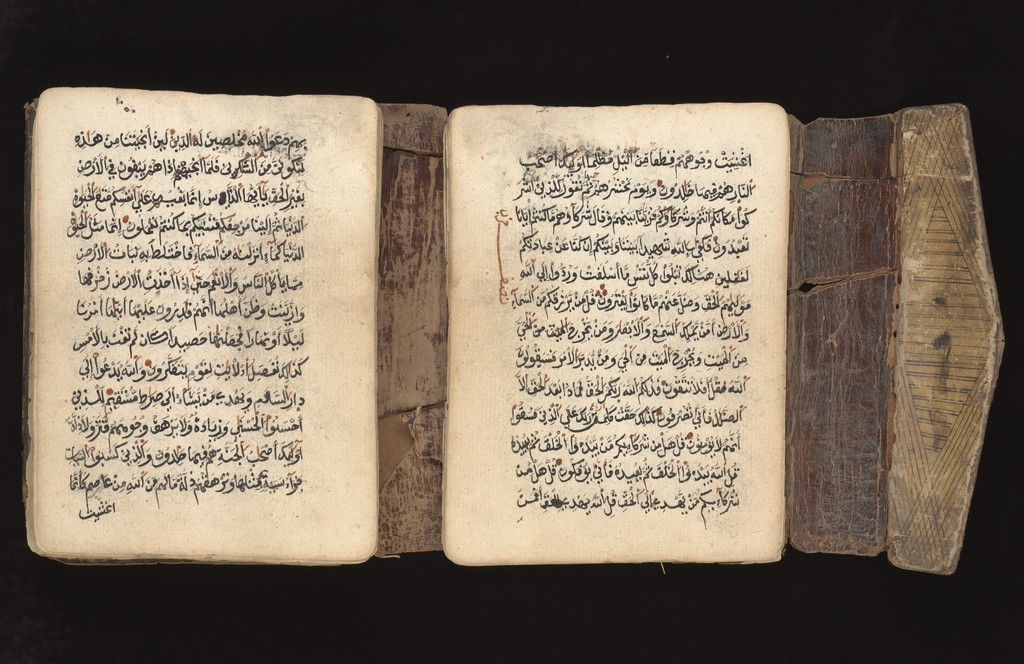 بهم دعوا الله مخلصين له الدين لين انجيتنا من هذه
لنكونن من الشكرين فلما انجيهم اذا هم يبغون في الارض
بغير الحق يايها الناس انما بغيكم على انفسكم متع الحيوة
الدنيا ثم الينا مرجعكم فننبيكم بما كنتم تعملون انما مثل الحيوة
الدنيا كماء انزلنه من السماء فاختلط به نبات الارض
مما ياكل الناس والانعم حتى اذا اخذت الارض زخرفها
وازينت وظن اهلها انهم قدرون عليها اتيها امرنا
ليلا او نهارا فجعلنها حصيدا كان لم تغن بالامس
كذلك نفصل الايت لقوم يتفكرون والله يدعوا الى
دار السلم ويهدى من يشاء الى صرط مستقيم للذين
احسنوا الحسنى وزيادة ولا يرهق وجوههم قتر ولا ذلة
اوليك اصحب الجنة هم فيها خلدون والذين كسبوا السيات
جزاء سيية بمثلها وترهقهم ذلة مالهم من الله من عاصم كانما
اغشيت
اغشيت وجوههم قطعا من اليل مظلما اوليك اصحب
النار هم فيها خلدون ويوم نحشرهم جميعا ثم نقول للذين اشر
كوا مكانكم انتم وشركاؤكم فزيلنا بينهم وقال شركاؤهم ما كنتم ايانا
تعبدون فكفى بالله شهيدا بيننا وبينكم ان كنا عن عبادتكم
لغفلين هنالك تبلوا كل نفس ما اسلفت وردوا الى الله
موليهم الحق وضل عنهم ما كانوا يفترون قل من يرزقكم من السماء
والارض امن يملك السمع والابصر ومن يخرج الحي
من الميت ويخرج الميت من الحي ومن يدبر الامر فسيقولون
الله فقل افلا تتقون فذلكم الله ربكم الحق فماذا بعد الحق الا
الضلل فانى تصرفون كذلك حقت كلمت ربك على الذين فسقوا
انهم لا يومنون قل هل من شركايكم من يبدوا الخلق ثم يعيده
قل الله يبدوا الخلق ثم يعيده فانى توفكون قل هل من
شركايكم من يهدى الى الحق قل الله يهدى للحق افمن